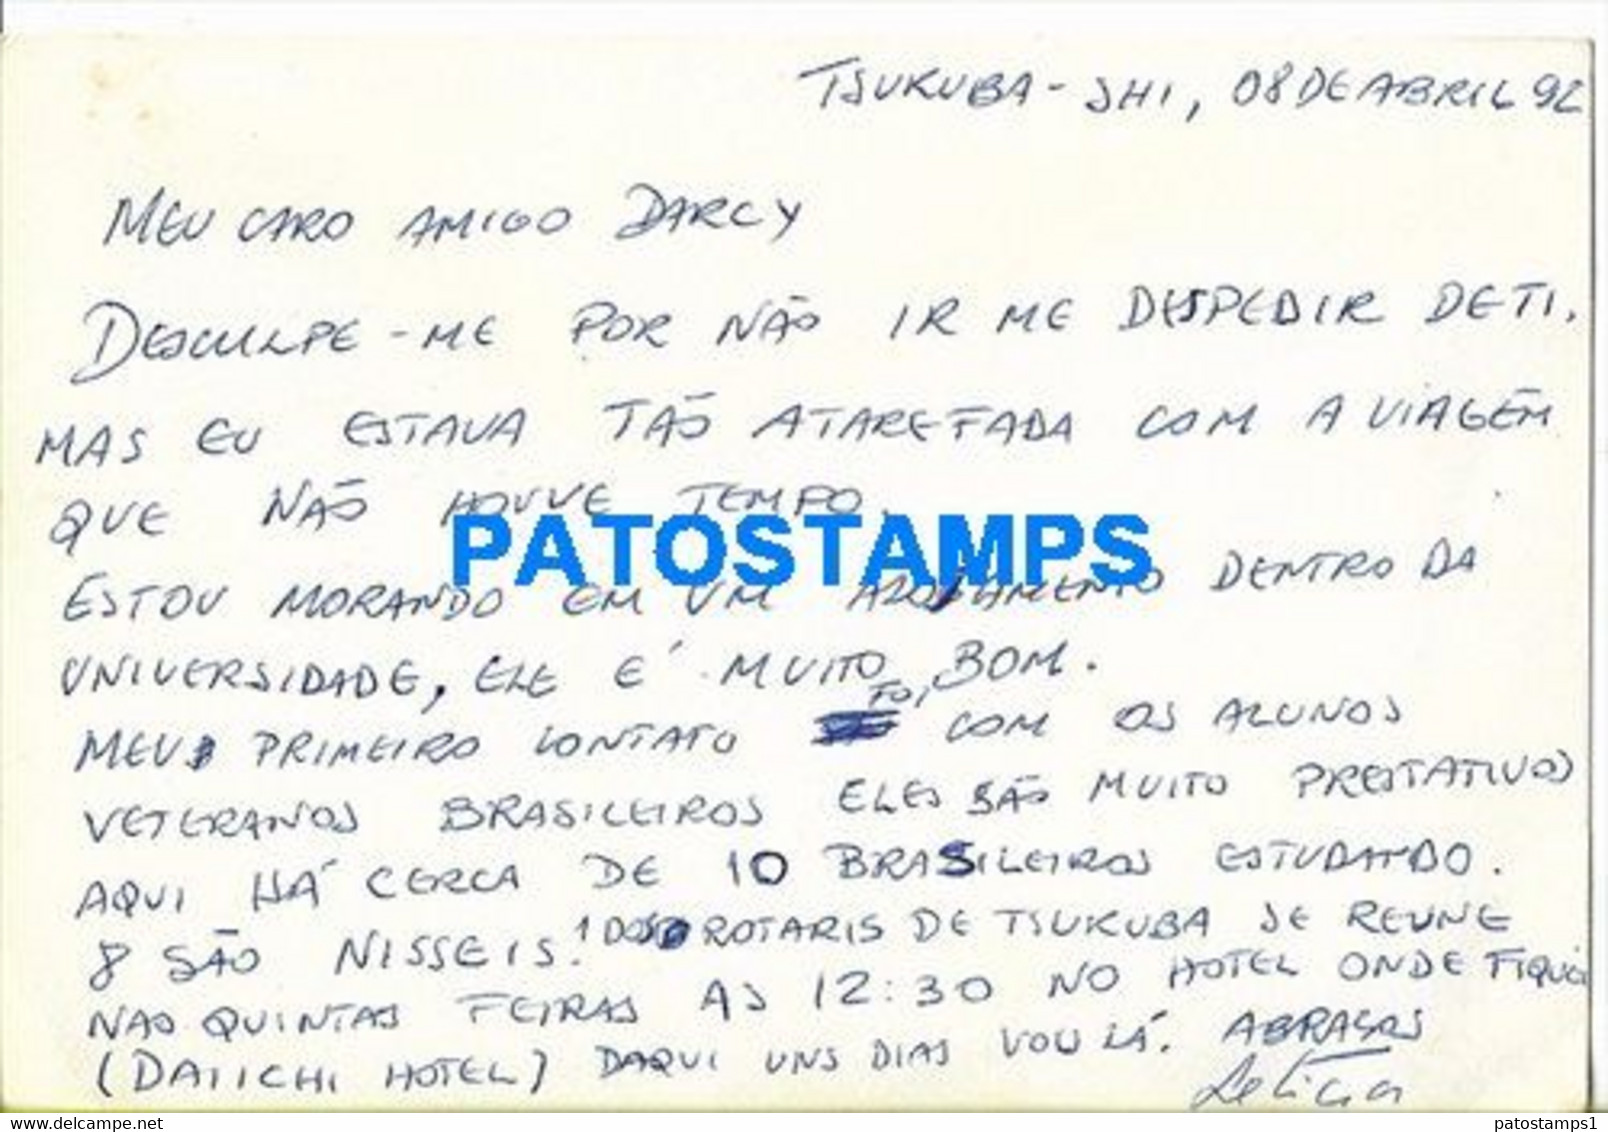 TSUKUBA-SHI, 08 DE ABRIL 92
MEU CARO AMIGO DARCY
DESCULPE-ME POR NÃO IR ME DESPEDIR DE TI.
MAS EU ESTAVA TÃO ATAREFADA COM A VIAGEM
QUE NÃO HOUVE TEMPO.
PATOSTAMPS
ESTOU MORANDO EM UM DENTRO DA
UNIVERSIDADE, ELE É MUITO BOM.
MEU PRIMEIRO CONTATO FOI COM OS ALUNOS
VETERANOS BRASILEIROS ELES SÃO MUITO PRESTATIVOS
AQUI HÁ CERCA DE 10 BRASILEIROS ESTUDANDO.
8 SÃO NISSEIS. ROTARIS DE TSUKUBA SE REUNE
NAS QUINTAS FEIRAS AS 12:30 NO HOTEL ONDE FIQUEI
(DAIICHI HOTEL) DAQUI UNS DIAS VOU LÁ. ABRAÇOS
Leticia
patostamps.com
patostamps1